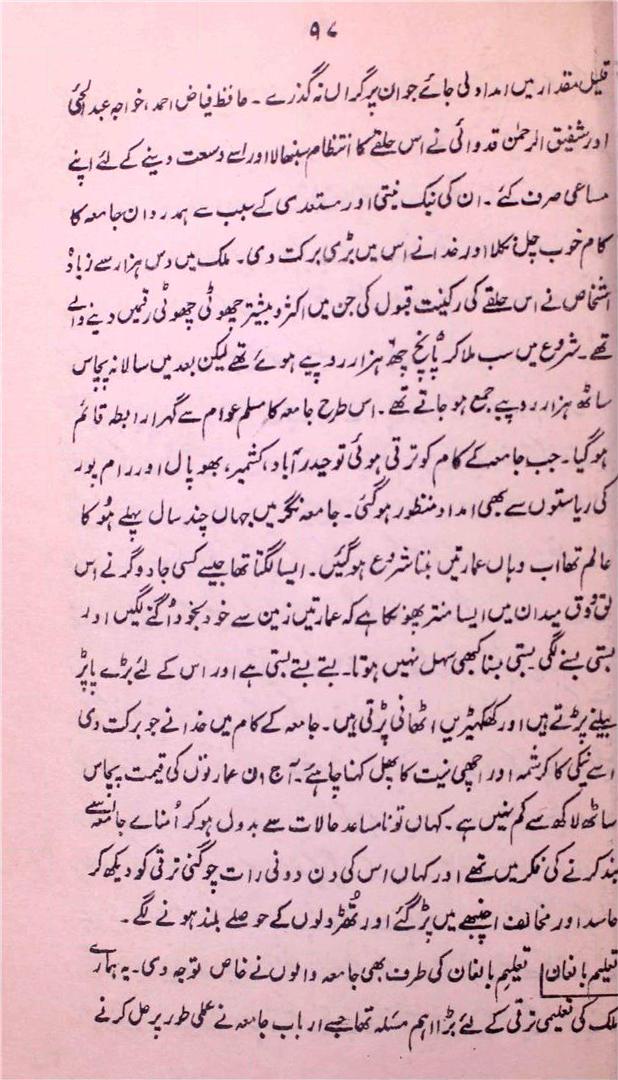 ۹۷
قلیل مقدار میں امداد لی جائے جو ان پر گراں نہ گذرے۔ حافظ فیاض احمد، خواجہ عبدالحئی
اور شفیق الرحمٰن قدوائی نے اس حلقے کا انتظام سنبھالا اور اسے وسعت دینے کے لئے اپنے
مساعی صرف کئے۔ ان کی نیک نیتی اور مستعدی کے سبب سے ہمدردان جامعہ کا
کام خوب چل نکلا اور خدا نے اس میں بڑی برکت دی۔ ملک میں دس ہزار سے زیادہ
اشخاص نے اس حلقے کی رکنیت قبول کی جن میں اکثر و بیشتر چھوٹی چھوٹی رقمیں دینے والے
تھے۔ شروع میں سب ملا کر پانچ چھ ہزار روپیے ہوئے تھے لیکن بعد میں سالانہ پچاس
ساٹھ ہزار روپیے جمع ہو جاتے تھے۔ اس طرح جامعہ کا مسلم عوام سے گہرا رابطہ قائم
ہو گیا۔ جب جامعہ کے کام کو ترقی ہوئی تو حیدر آباد، کشمیر، بھوپال اور رام پور
کی ریاستوں سے بھی امداد منظور ہو گئی۔ جامعہ نگر میں جہاں چند سال پہلے ہُو کا
عالم تھا اب وہاں عمارتیں بننا شروع ہو گئیں۔ ایسا لگتا تھا جیسے کسی جادوگر نے اس
لق و دق میدان میں ایسا منتر پھونکا ہے کہ عمارتیں زمین سے خود بخود اُگنے لگیں اور
بستی بسنے لگی بستی بسنا کبھی سہل نہیں ہوتا۔ بستے بستے بستی ہے اور اس کے لئے بڑے پاپڑ
بیلنے پڑتے ہیں اور کھکھیڑیں اٹھانی پڑتی ہیں۔ جامعہ کے کام میں خدا نے جو برکت دی
اسے نیکی کا کرشمہ اور اچھی نیت کا پھل کہنا چاہئے۔ آج ان عمارتوں کی قیمت پچاس
ساٹھ لاکھ سے کم نہیں ہے۔ کہاں تو نامساعد حالات سے بددل ہو کر اُمنائے جامعہ اسے
بند کرنے کی فکر میں تھے اور کہاں اس کی دن دونی رات چوگنی ترقی کو دیکھ کر
حاسد اور مخالف اچنبھے میں پڑ گئے اور تھُڑدلوں کے حوصلے بلند ہونے لگے۔
تعلیم بالغان تعلیمِ بالغان کی طرف بھی جامعہ والوں نے خاص توجہ دی۔ یہ ہمارے
ملک کی تعلیمی ترقی کے لئے بڑا اہم مسئلہ تھا جسے ارباب جامعہ نے عملی طور پر حل کرنے